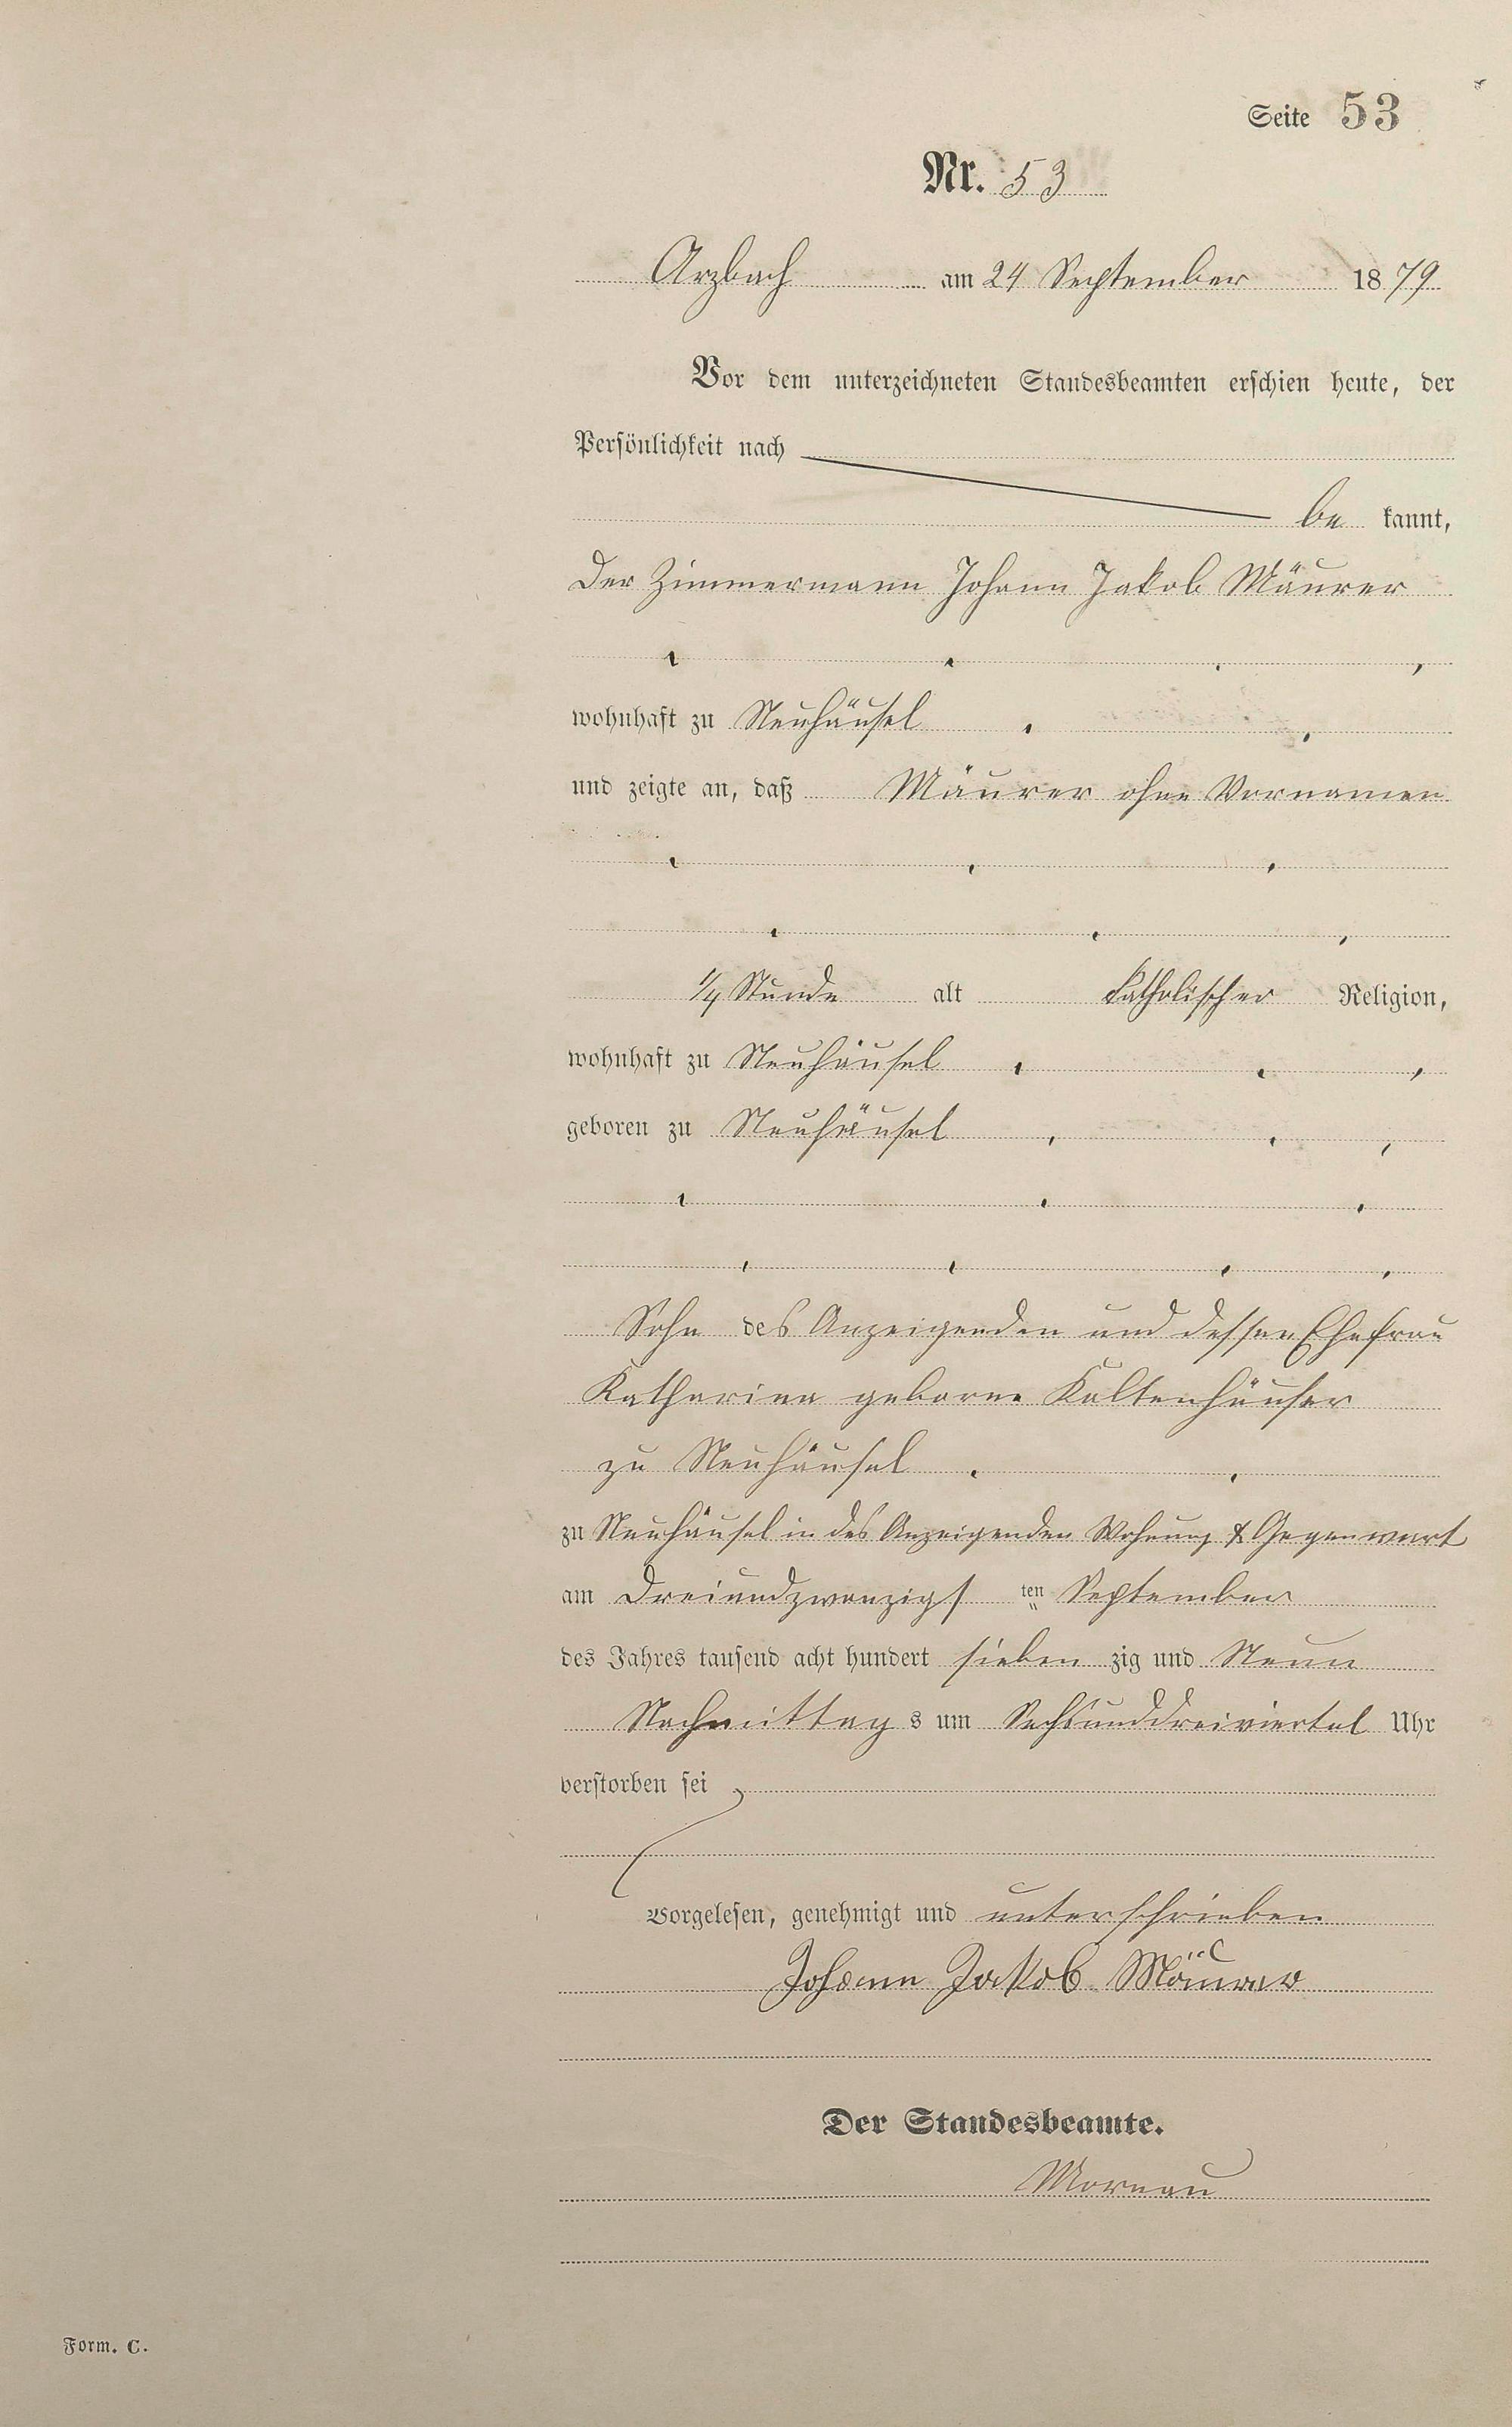 Seite 53
Nr. 53
Arzbach am 24 September 1879
Vor dem unterzeichneten Standesbeamten erschien heute, der
Persönlichkeit nach
be kannt,
Der Zimmermann Johann Jakob Mäurer
wohnhaft zu Neuhäusel
und zeigte an, daß Mäurer ohne Vornamen
1/4 Stunde alt katholischer Religion,
wohnhaft zu Neuhäusel
geboren zu Neuhäusel
Sohn des Anzeigenden und dessen Ehefrau
Katharina geborne Kaltenhäuser
zu Neuhäusel
zu Neuhäusel in des Anzeigenden Wohnung & Gegenwart
am Dreiundzwanzigsten September
des Jahres tausend acht hundert siebenzig und Neun
Nachmittags um Sechsunddreiviertel Uhr
verstorben sei
Vorgelesen, genehmigt und unterschrieben
Johann Jakob Mäurer
Der Standesbeamte.
Mornau
Form. C.